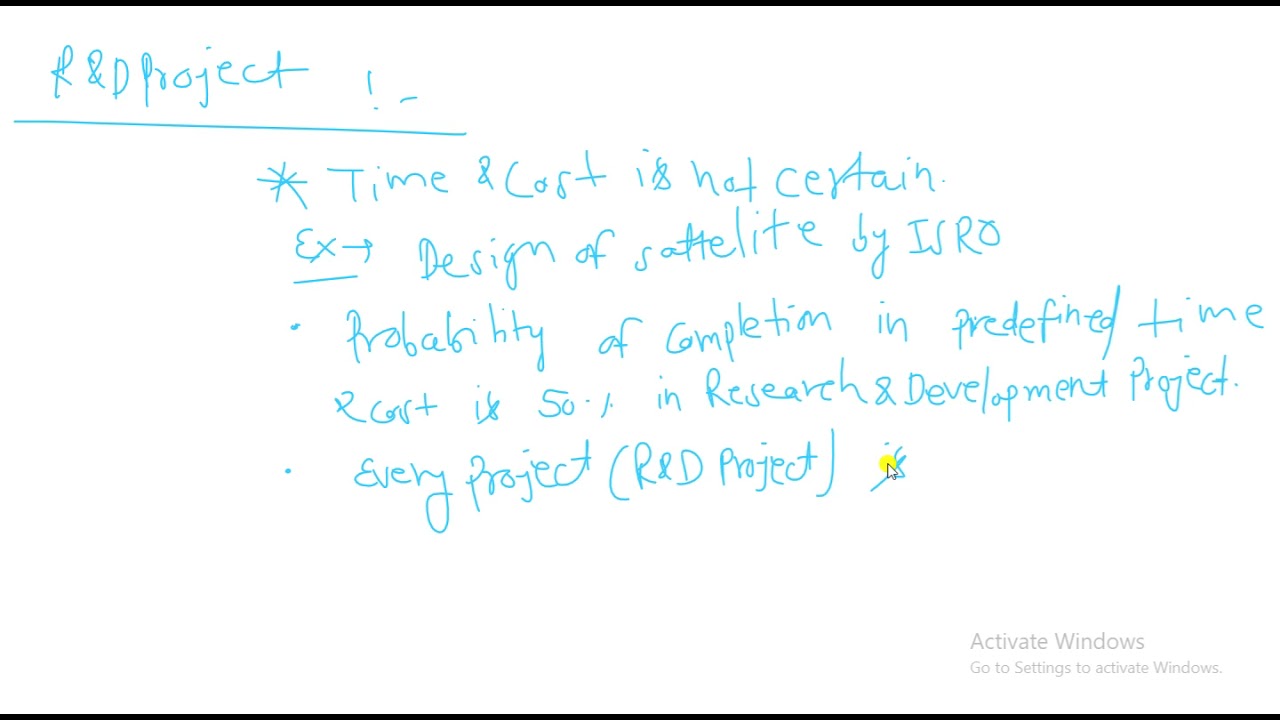 R&D Project :-
* Time & Cost is not certain.
Ex→ Design of sattelite by ISRO
• Probability of completion in predefined time
& cost is 50% in Research & Development Project.
• Every project (R&D Project) is
Activate Windows
Go to Settings to activate Windows.